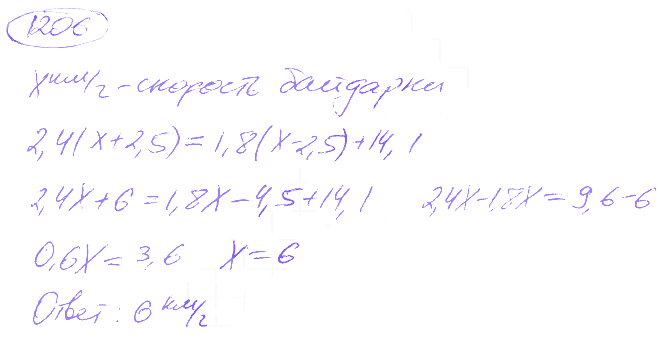 1206
x км/г - скорость байдарки
2,4(x+2,5)=1,8(x-2,5)+14,1
2,4x+6=1,8x-4,5+14,1 2,4x-1,8x=9,6-6
0,6x=3,6 x=6
Ответ: 6 км/г